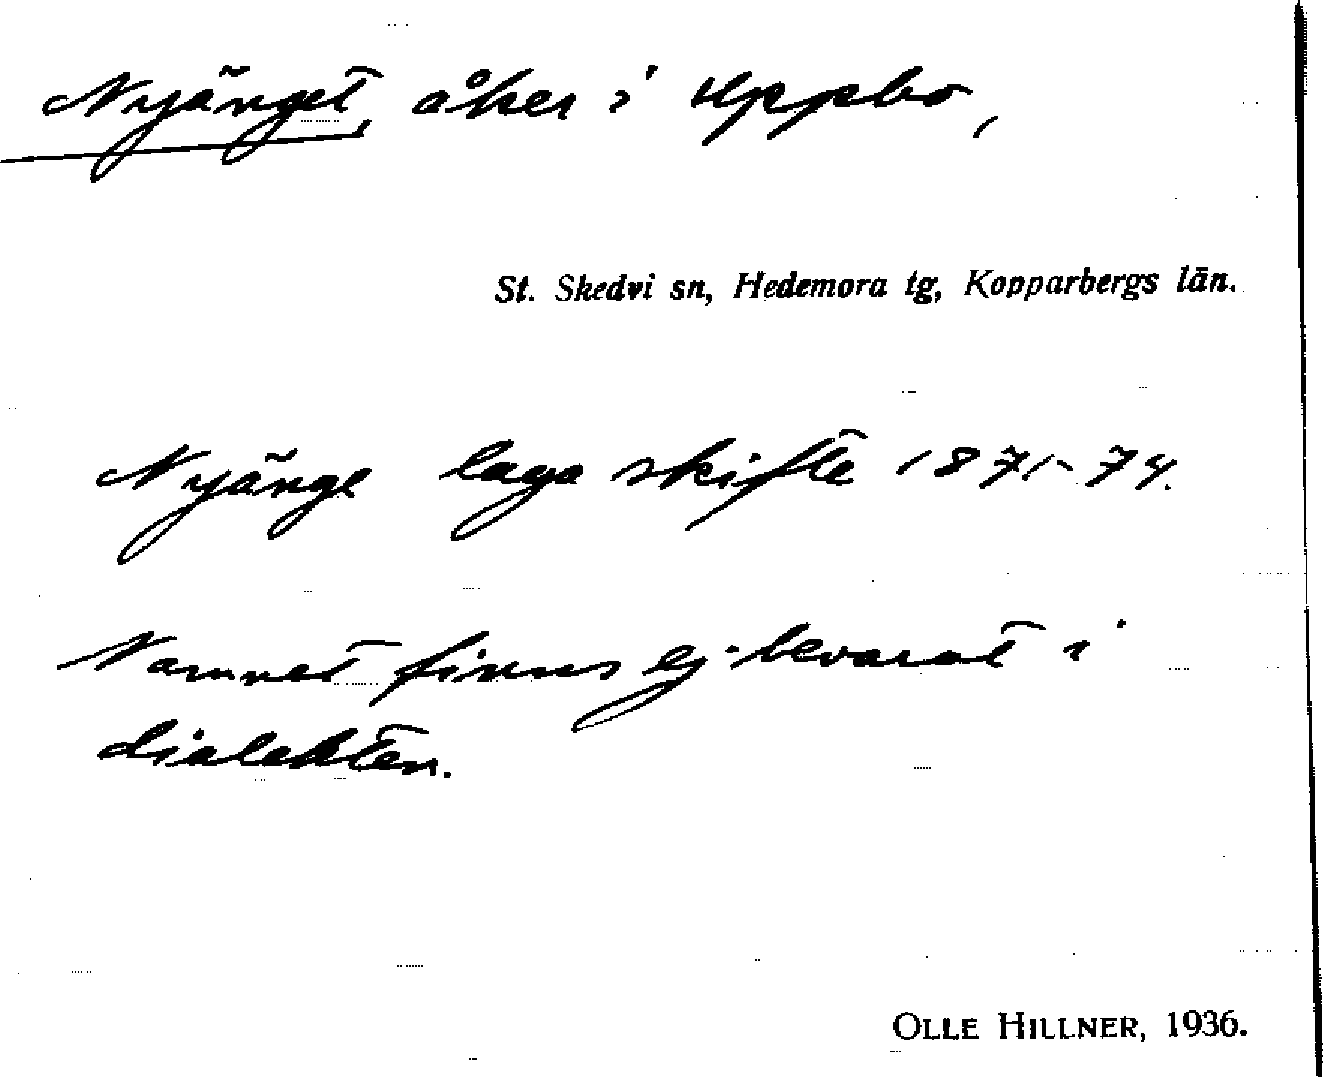 Nyänget, åker i Uppbo,
St. Skedvi sn, Hedemora tg, Kopparbergs län.
Nyänge laga skifte 1871-74.
Namnet finns ej bevarat i
dialekten.
OLLE HILLNER, 1936.